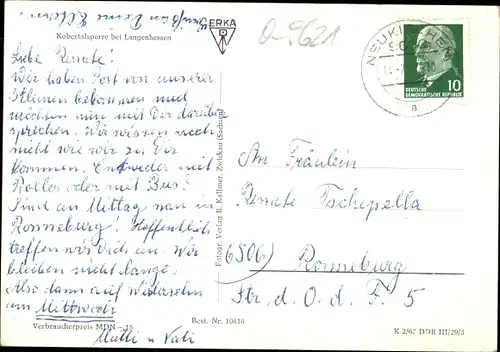 Gruß an Deine Eltern.
Kobertalsperre bei Langenhessen
Liebe Renate!
Wir haben Post von unserer
Kleinen bekommen und
möchten nun mit Dir darüber
sprechen. Wir wissen noch
nicht wie wir zu Dir
kommen. Entweder mit
Roller oder mit Bus.
Sind am Mittag nan in
Ronneburg! Hoffentlich
treffen wir Dich an. Wir
bleiben nicht lange.
Also dann auf Wiedersehn
am Mittwoch
Mutti u Vati
Verbraucherpreis MDN -,15
Best.-Nr. 10616
Fotogr. Verlag R. Kallmer, Zwickau (Sachsen)
ERKA
O-9621
NEUKIRCHEN
a
10
DEUTSCHE
DEMOKRATISCHE REPUBLIK
An Fräulein
Renate Tschepella
6506) Ronneburg
Str. d. O. d. F. 5
K 2/67 DDR III/29/5